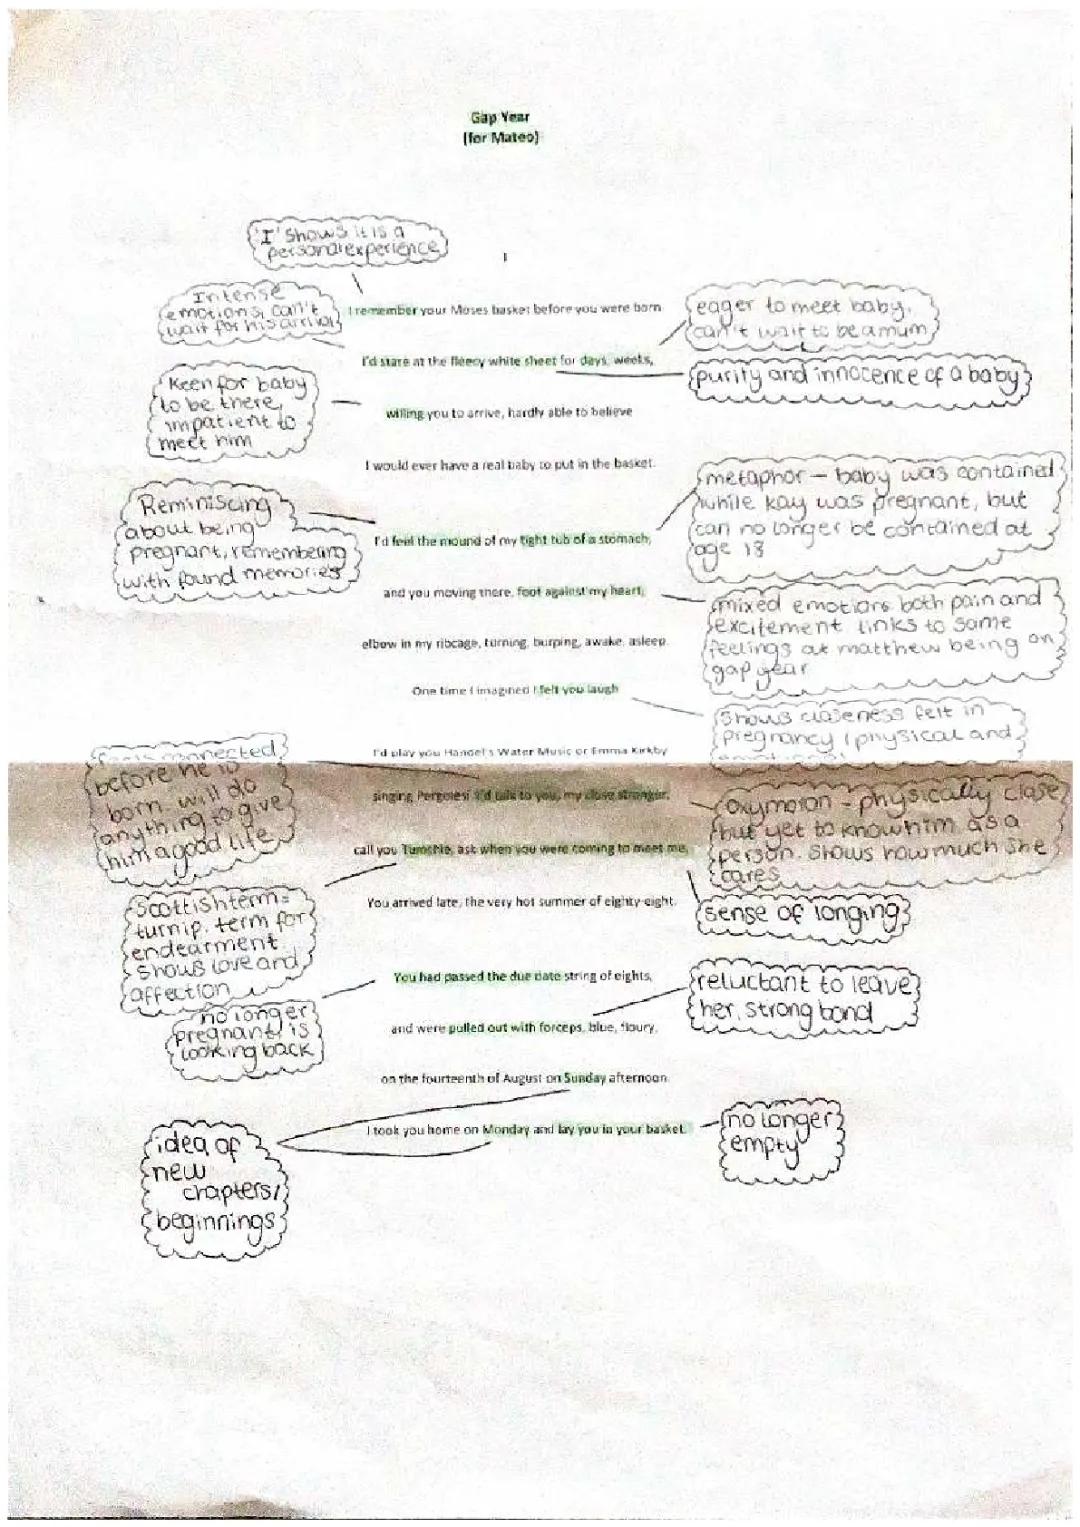 Gap Year
(for Mateo)
'I' shows it is a
personal experience
I
Intense
emotions, can't
wait for his arrival
I remember your Moses basket before you were born
eager to meet baby,
can't wait to be a mum
I'd stare at the fleecy white sheet for days, weeks,
purity and innocence of a baby
Keen for baby
to be there,
impatient to
meet him
willing you to arrive, hardly able to believe
I would ever have a real baby to put in the basket.
metaphor - baby was contained
while kay was pregnant, but
can no longer be contained at
age 18
Reminiscing
about being
pregnant, remembering
with found memories
I'd feel the mound of my tight tub of a stomach,
and you moving there, foot against my heart,
mixed emotions both pain and
excitement links to same
feelings at matthew being on
gap year
elbow in my ribcage, turning, burping, awake, asleep.
One time I imagined I felt you laugh
shows closeness felt in
pregnancy (physical and
I'd play you Handel's Water Music or Emma Kirkby
connected
before he is
born. will do
anything to give
him a good life
singing Pergolesi. I'd talk to you, my close stranger,
oxymoron - physically close
but yet to know him as a
person. shows how much she
cares
call you Tumshie, ask when you were coming to meet me.
Scottish term=
turnip. term for
endearment
shows love and
affection
You arrived late, the very hot summer of eighty-eight.
sense of longing
You had passed the due date string of eights,
reluctant to leave
her, strong bond
no longer
pregnant/is
looking back
and were pulled out with forceps, blue, floury,
on the fourteenth of August on Sunday afternoon.
I took you home on Monday and lay you in your basket.
no longer
empty
idea of
new
chapters/
beginnings